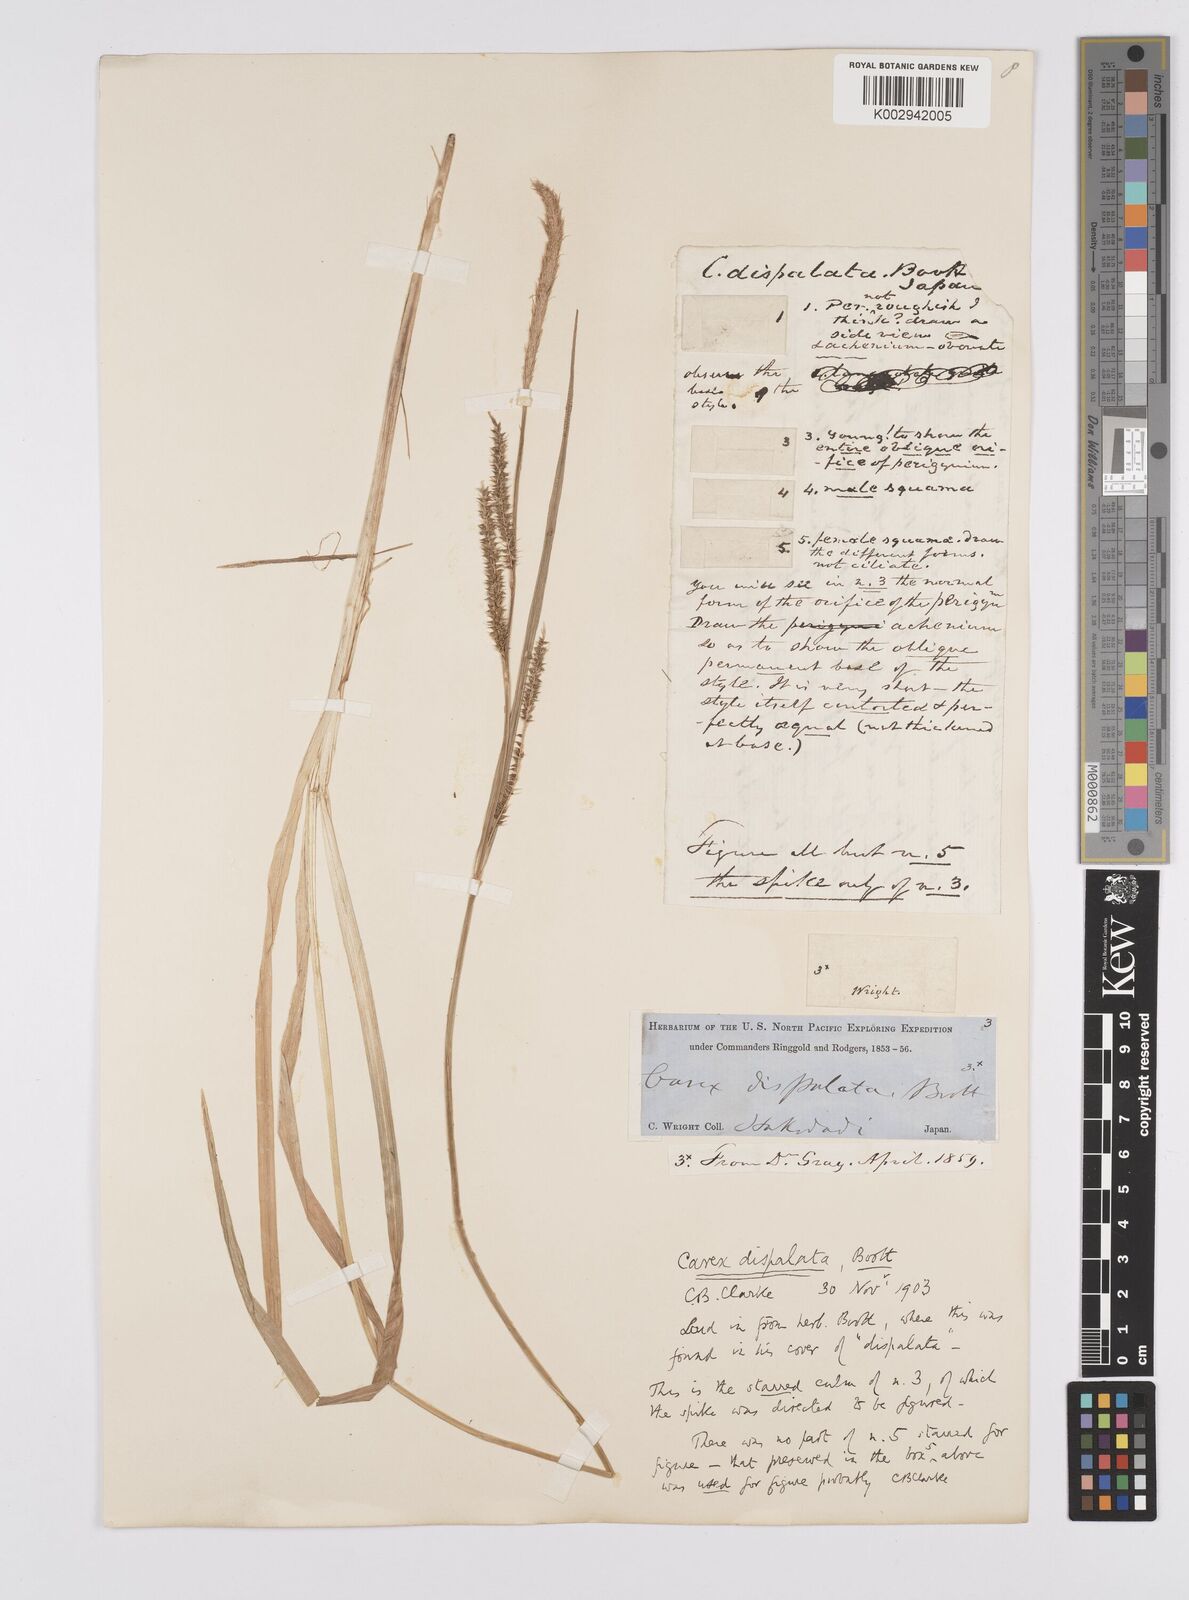 ROYAL BOTANIC GARDENS KEW
K002942005
8
C. dispalata. Boott
Japan
1
1. Per. not roughish I
think? draw a
side view
achenium - obovate
observe the
basis of the
style.
3
3. Young! to show the
entire oblique ori-
-fice of perigynium.
4
4. male squama
5.
5. female squama. draw
the different forms.
not ciliate.
You will see in n. 3 the normal
form of the orifice of the perigym
Draw the perigyni achenium
so as to show the oblique
permanent base of the
style. It is very short - the
style itself contorted & per-
-fectly equal (not thickened
at base.)
Figure all but n. 5
the spike only of n. 3.
3x
Wright.
3
HERBARIUM OF THE U. S. NORTH PACIFIC EXPLORING EXPEDITION
under Commanders Ringgold and Rodgers, 1853-56.
3.x
Carex dispalata. Boott
C. WRIGHT Coll. Hakodadi Japan.
3x. From Dr Gray. April. 1859.
Carex dispalata, Boott
C.B. Clarke 30 Novr 1903
Laid in from herb. Boott, where this was
found in his cover of "dispalata" -
This is the starred culm of n. 3, of which
the spike was directed to be figured -
There was no part of n. 5 starred for
figure - that preserved in the box 5 above
was used for figure probably CBClarke
inches
centimeters
Density
Don Williams
M000862
Royal Botanic Gardens
Kew
0 1 2 3 4 5 6 7 8 9 10
cm